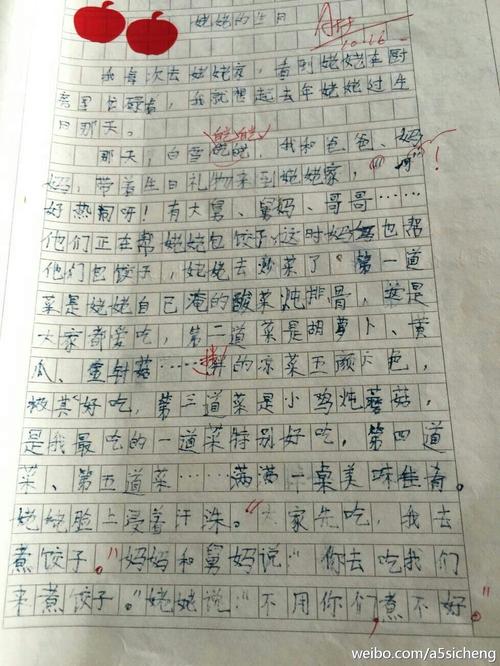 姥姥的生日
A++
10.16
我每次去姥姥家，看到姥姥在厨
房里忙碌着，我就想起去年姥姥过生
日那天。
皑皑
那天，白雪姥姥，我和爸爸、妈
妈，带着生日礼物来到姥姥家，“啊”！
好热闹呀！有大舅、舅妈、哥哥……
他们正在帮姥姥包饺子，这时妈妈也帮
他们包饺子，姥姥去炒菜了。第一道
菜是姥姥自己淹的酸菜炖排骨，这是
大家都爱吃，第二道菜是胡萝卜、黄
瓜、金针菇……拌的凉菜五颜六色，
极其好吃，第三道菜是小鸡炖蘑菇，
是我最吃的一道菜特别好吃，第四道
菜、第五道菜……满满一桌美味佳肴。
姥姥脸上浸着汗洙。“大家先吃，我去
煮饺子。”妈妈和舅妈说“你去吃我们
来煮饺子。”姥姥说“不用你们，煮不好。”
weibo.com/a5sicheng